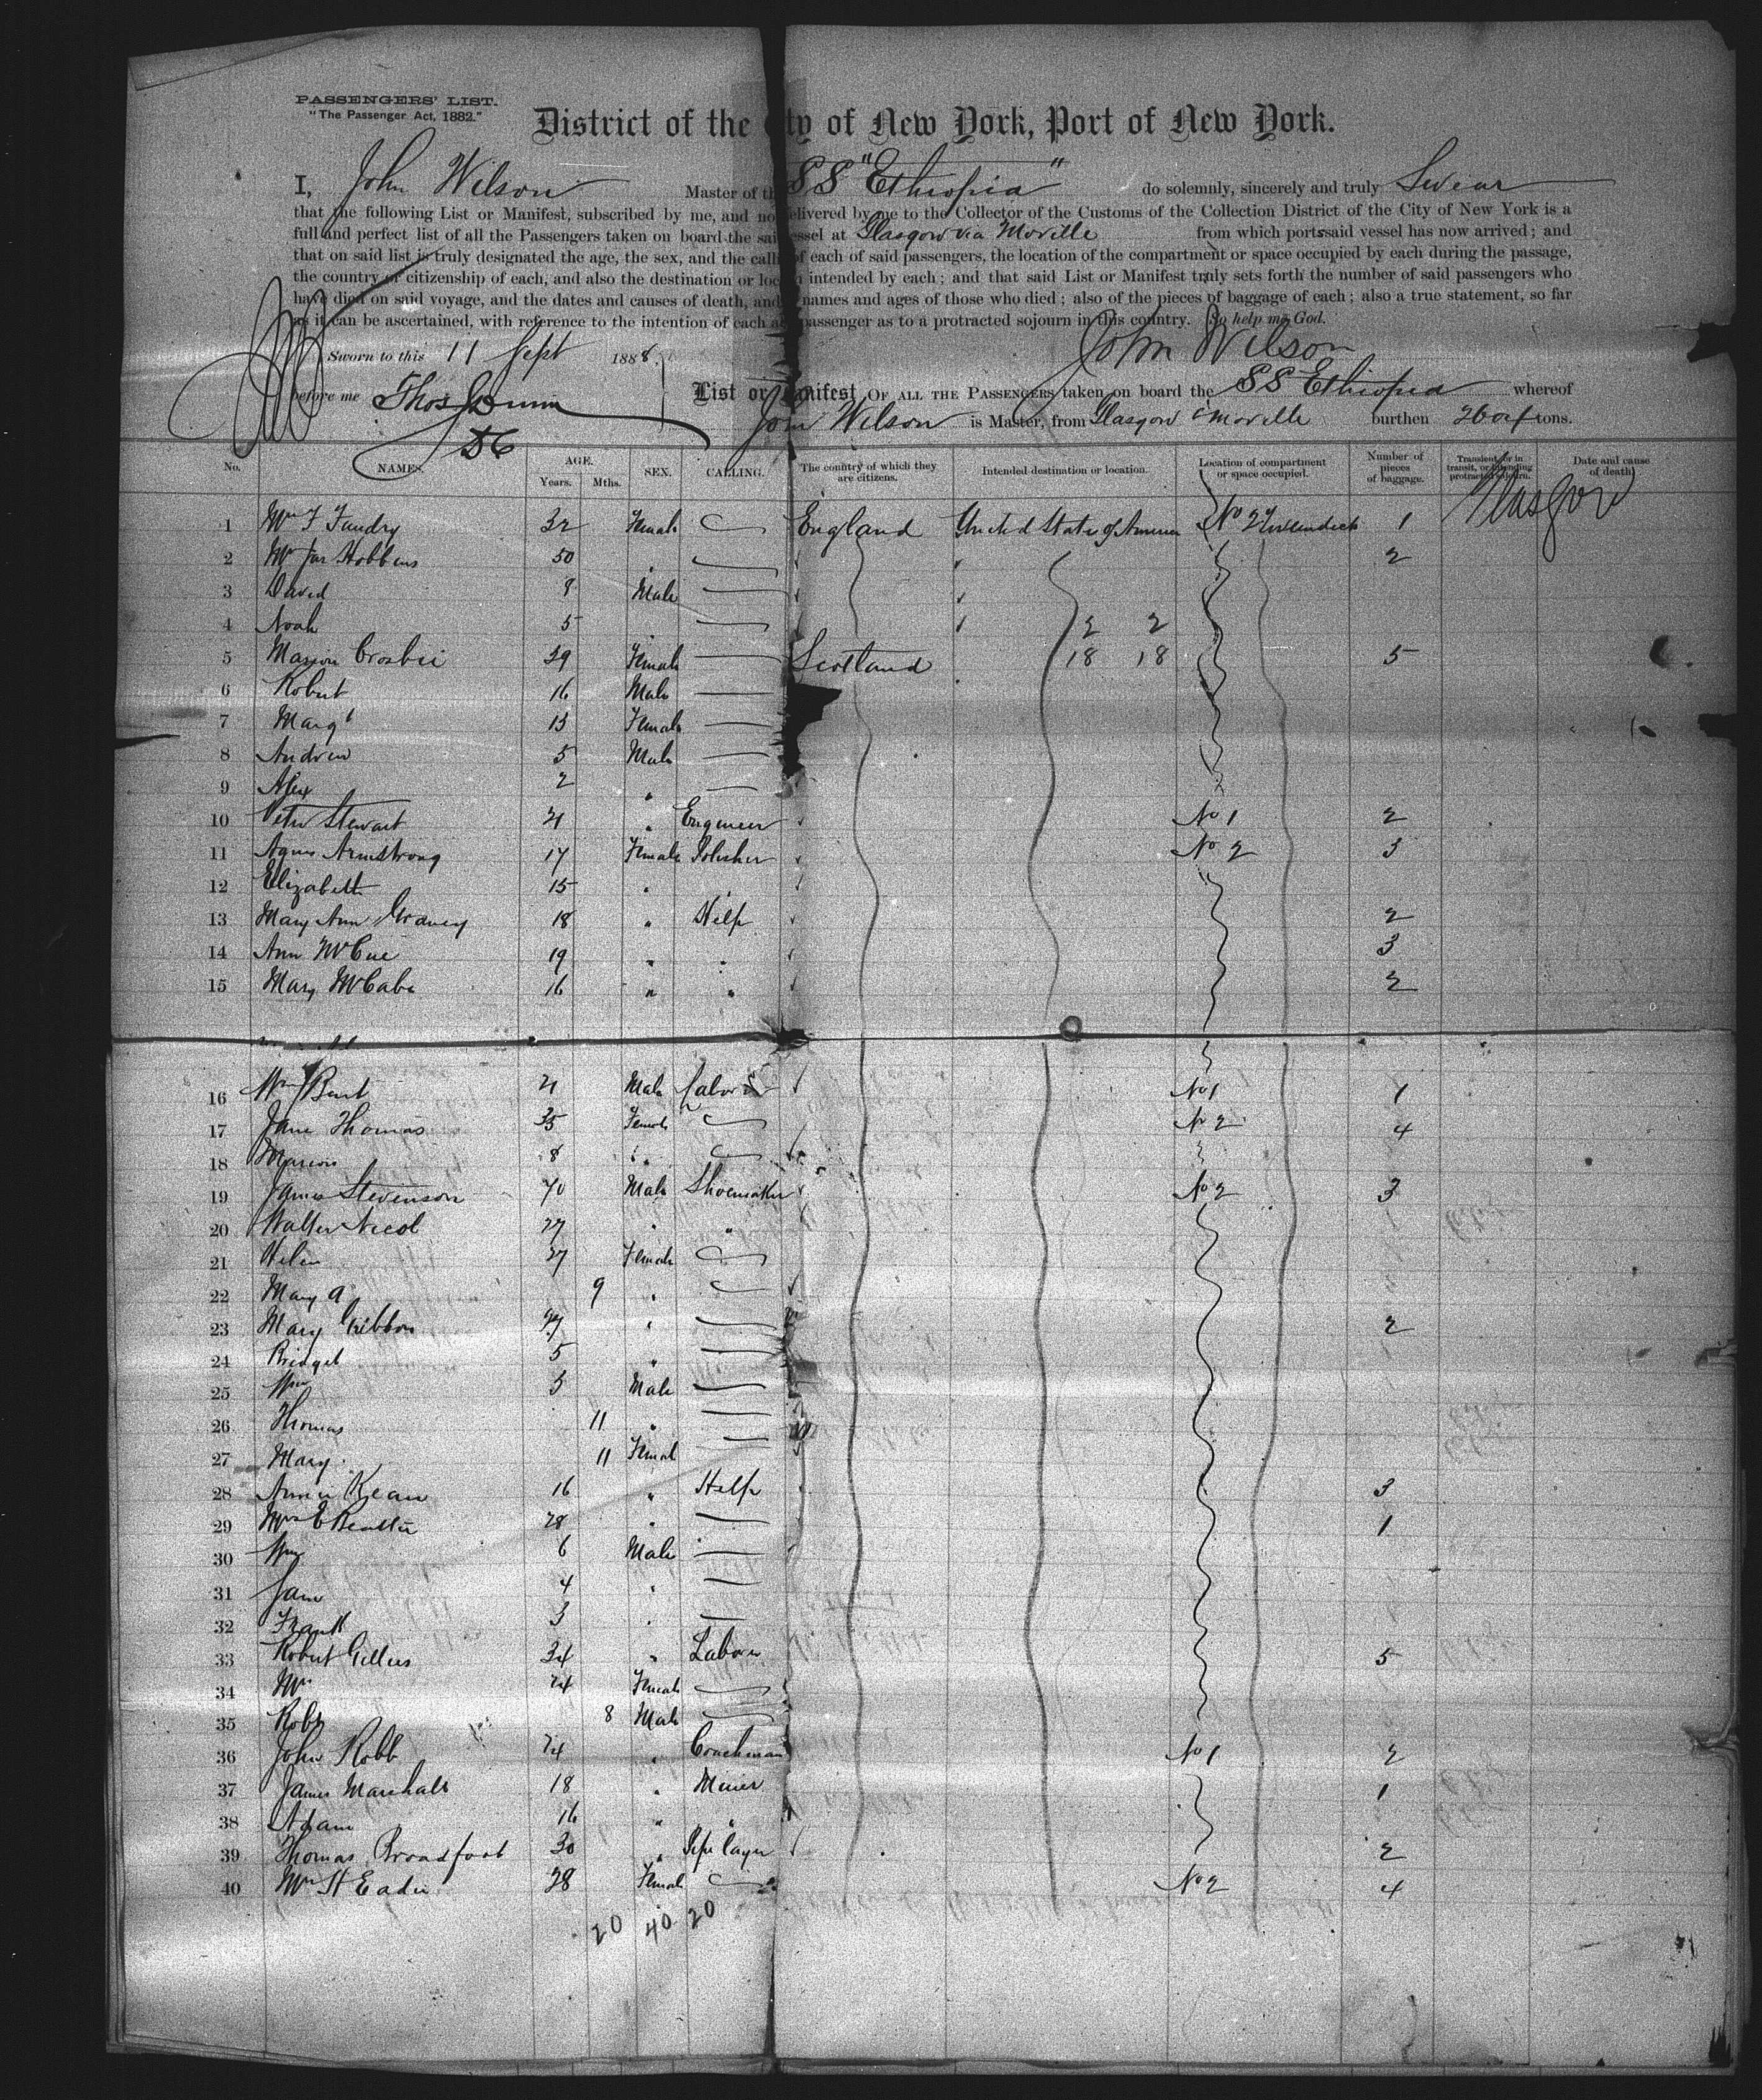 PASSENGERS' LIST.
"The Passenger Act, 1882."
District of the City of New York, Port of New York.
I, John Wilson Master of the SS "Ethiopia" do solemnly, sincerely and truly Swear
that the following List or Manifest, subscribed by me, and now delivered by me to the Collector of the Customs of the Collection District of the City of New York is a
full and perfect list of all the Passengers taken on board the said vessel at Glasgow via Moville from which ports said vessel has now arrived; and
that on said list is truly designated the age, the sex, and the calling of each of said passengers, the location of the compartment or space occupied by each during the passage,
the country of citizenship of each, and also the destination or location intended by each; and that said List or Manifest truly sets forth the number of said passengers who
have died on said voyage, and the dates and causes of death, and names and ages of those who died; also of the pieces of baggage of each; also a true statement, so far
as it can be ascertained, with reference to the intention of each passenger as to a protracted sojourn in this country. So help me God.
Sworn to this 11 Sept 1888. John Wilson
before me Thos Dunn List or Manifest OF ALL THE PASSENGERS taken on board the SS Ethiopia whereof
John Wilson is Master, from Glasgow & Moville burthen tons.
No. NAMES. AGE. Years. Mths. SEX. CALLING. The country of which they are citizens. Intended destination or location. Location of compartment or space occupied. Number of pieces of baggage. Transient, or in transit, or intending protracted sojourn. Date and cause of death.
Glasgow
1 32 Female England United State of America No 2 1
2 Hobbens 50 " 2
3 David 8 Male
4 Noah 5 2 2
5 Marion Crosbie 39 Female Scotland 18 18 5
6 Robert 16 Male
7 Margt 13 Female
8 Andrew 5 Male
9 Alex 2 "
10 Peter Stewart 21 " Engineer No 1 2
11 Agnes Armstrong 17 Female Polisher No 2 3
12 Elizabeth 15 " "
13 Mary Ann 18 " Help 2
14 Ann McCue 19 " " 3
15 Mary McCabe 16 " " 2
16 Wm 21 Male Laborer No 1 1
17 Jane Thomas 35 Female No 2 4
18 Marion 8 "
19 James Stevenson 40 Male Shoemaker No 2 3
20 Walter Nicol 27 " "
21 Helen 27 Female
22 Mary A 9 "
23 Mary Gibbon 27 " 2
24 Bridget 5 "
25 Wm 3 Male
26 Thomas 11 "
27 Mary 11 Female
28 Annie Kean 16 " Help 3
29 Mrs E Beattie 28 " 1
30 Wm 6 Male
31 4 "
32 Frank 3 "
33 Robert Gillies 34 " Laborer 5
34 Mrs 24 Female
35 Robt 8 Male
36 John Robb 24 " Coachman No 1 2
37 James Marshall 18 " Miner 1
38 Adam 16 " "
39 Thomas Broadfoot 30 " Pipe layer 2
40 Mrs H Eadie 28 Female No 2 4
20 40 20